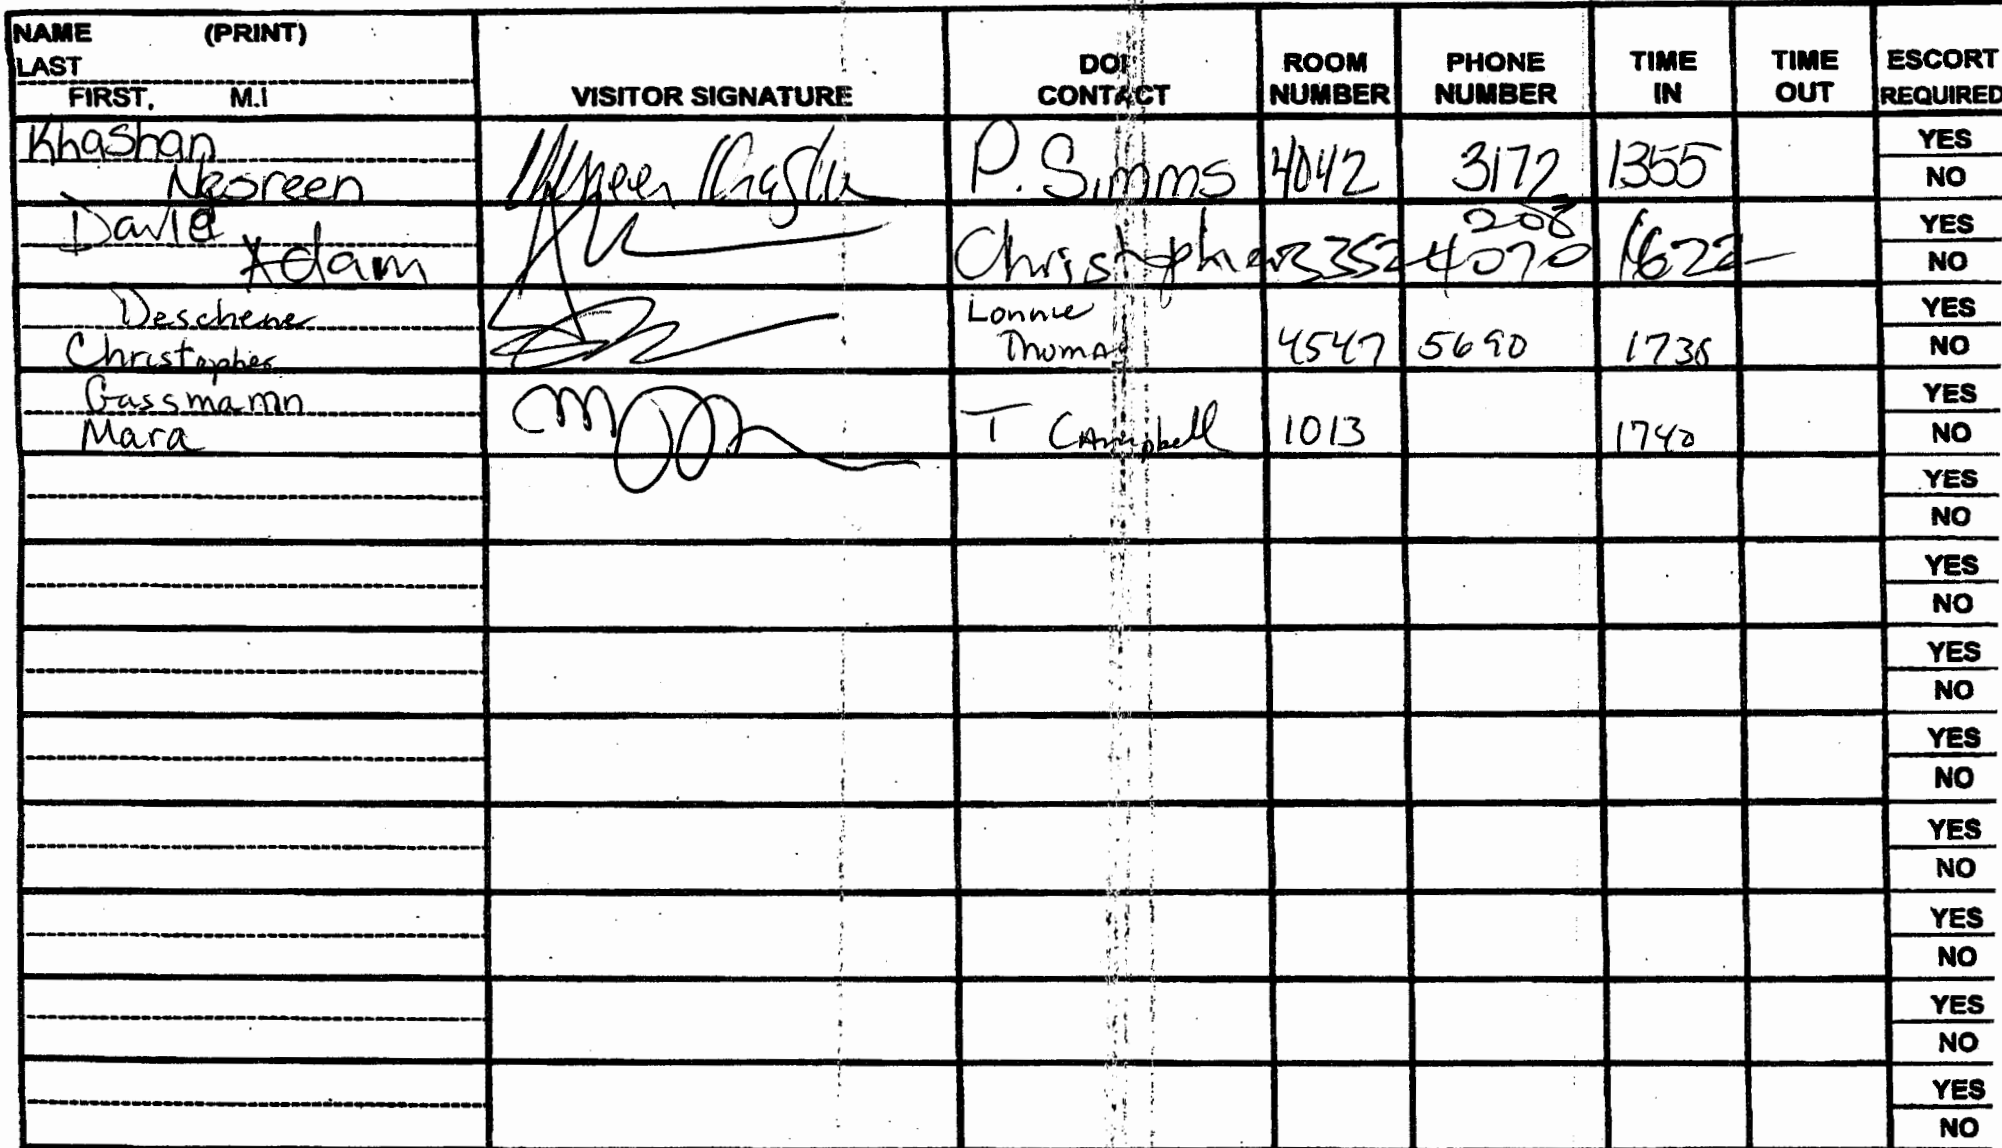 NAME (PRINT)
LAST
FIRST, M.I
VISITOR SIGNATURE
DOI CONTACT
ROOM NUMBER
PHONE NUMBER
TIME IN
TIME OUT
ESCORT REQUIRED
Khashan P. Simms 4042 3172 1355 YES
Nesreen NO
Adam Christopher 3352 208 4070 1622 YES
NO
Deschene Lonnie YES
Christopher Thomas 4547 5690 NO
Gassmann YES
Mara T Campbell 1013 1740 NO
YES
NO
YES
NO
YES
NO
YES
NO
YES
NO
YES
NO
YES
NO
YES
NO